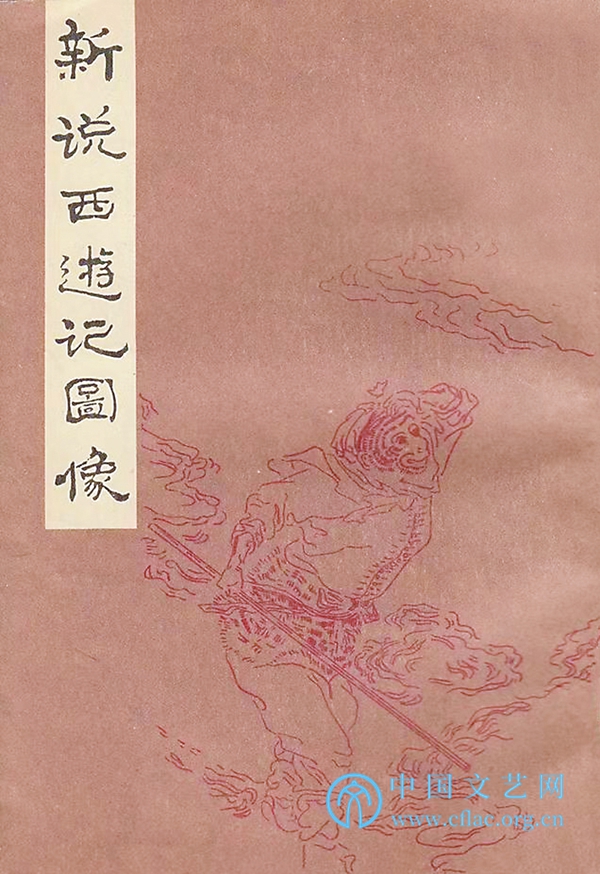 新说西遊记圖像
中国文艺网
www.cflac.org.cn